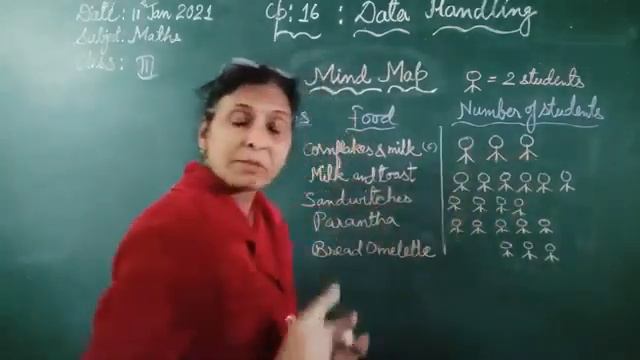 Date: 11th Jan 2021
Ch: 16 : Data Handling
Subject: Maths
Class: II
Mind Map
= 2 students
s Food Number of students
Cornflakes & milk (c)
Milk and toast
Sandwitches
Parantha
Bread Omelette